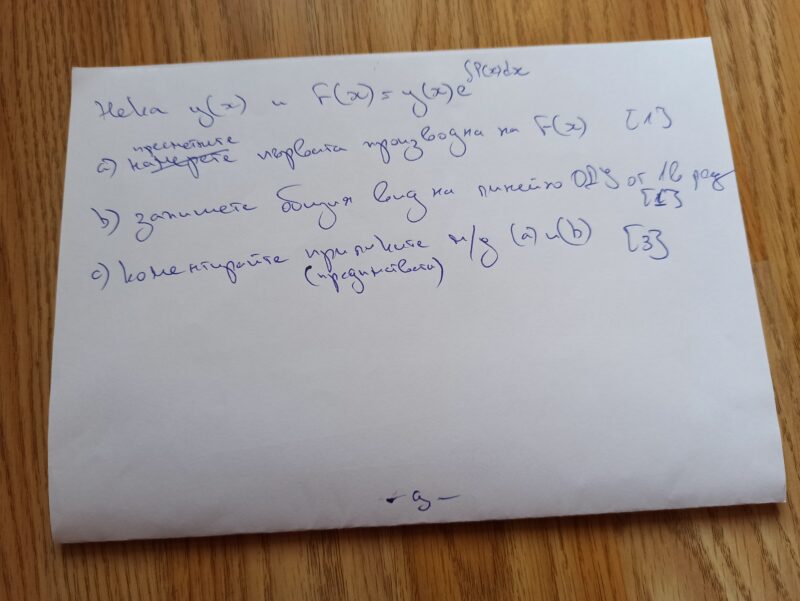 Нека y(x) и F(x) = y(x)e^∫P(x)dx
пресметнете
а) намерете първата производна на F(x) [1]
b) запишете общия вид на линейно ОДУ от 1в ред
[1]
c) коментирайте приликите м/у (a) и (b) [3]
(предимствата)